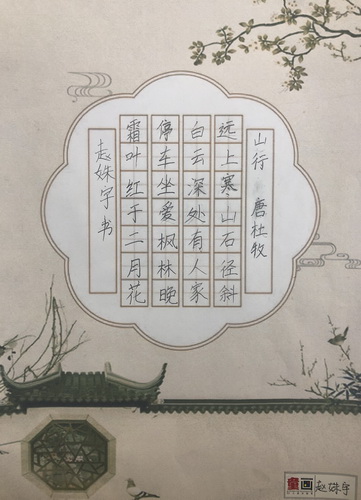 山行 唐杜牧
远上寒山石径斜
白云深处有人家
停车坐爱枫林晚
霜叶红于二月花
赵姝宇书
童画
赵姝宇